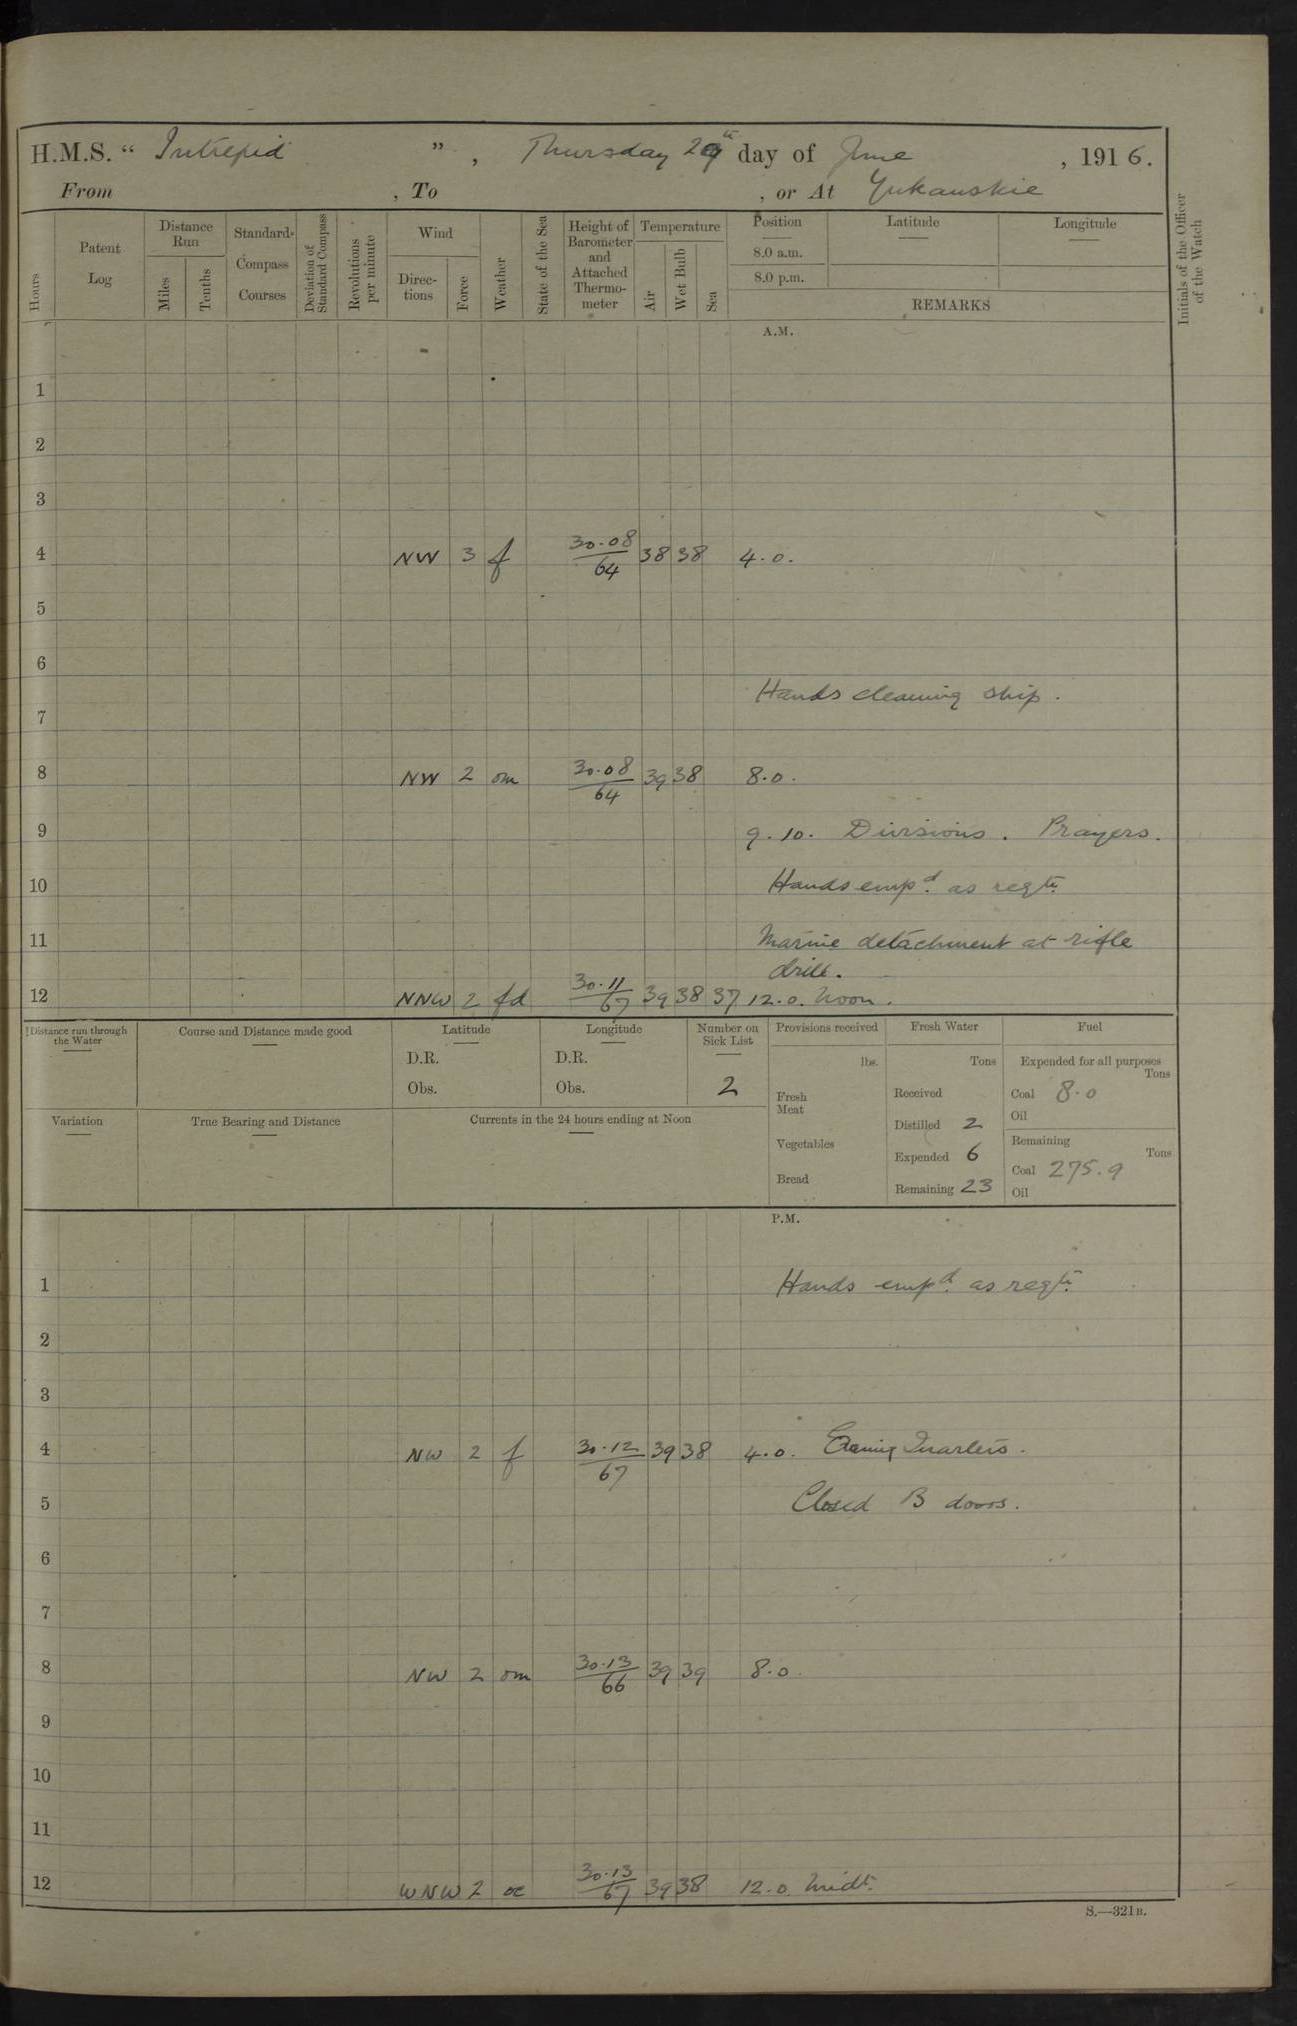 H.M.S. “ Intrepid ” , Thursday 29th day of June , 1916.
From , To , or At Yukanskie
Hours
Patent Log
Distance Run
Miles
Tenths
Standard Compass Courses
Deviation of Standard Compass
Revolutions per minute
Wind
Direc-tions
Force
Weather
State of the Sea
Height of Barometer and Attached Thermo-meter
Temperature
Air
Wet Bulb
Sea
Position
8.0 a.m.
8.0 p.m.
Latitude
Longitude
REMARKS
Initials of the Officer of the Watch
A.M.
1
2
3
4 NW 3 f 30.08/64 38 38 4.0.
5
6
Hands cleaning ship.
7
8 NW 2 om 30.08/64 39 38 8.0.
9 9.10. Divisions. Prayers.
10 Hands empd. as reqte.
11 Marine detachment at rifle
drill.
12 NNW 2 fd 30.11/67 39 38 37 12.0. Noon.
Distance run through the Water
Course and Distance made good
Latitude
D.R.
Obs.
Longitude
D.R.
Obs.
Number on Sick List
2
Provisions received
lbs.
Fresh Meat
Vegetables
Bread
Fresh Water
Tons
Received
Distilled 2
Expended 6
Remaining 23
Fuel
Expended for all purposes
Tons
Coal 8.0
Oil
Remaining
Tons
Coal 275.9
Oil
Variation
True Bearing and Distance
Currents in the 24 hours ending at Noon
P.M.
1 Hands empd. as reqte.
2
3
4 NW 2 f 30.12/67 39 38 4.0. Evening Quarters.
5 Closed B doors.
6
7
8 NW 2 om 30.13/66 39 39 8.0.
9
10
11
12 WNW 2 oc 30.13/67 39 38 12.0. Midt.
S.—321B.